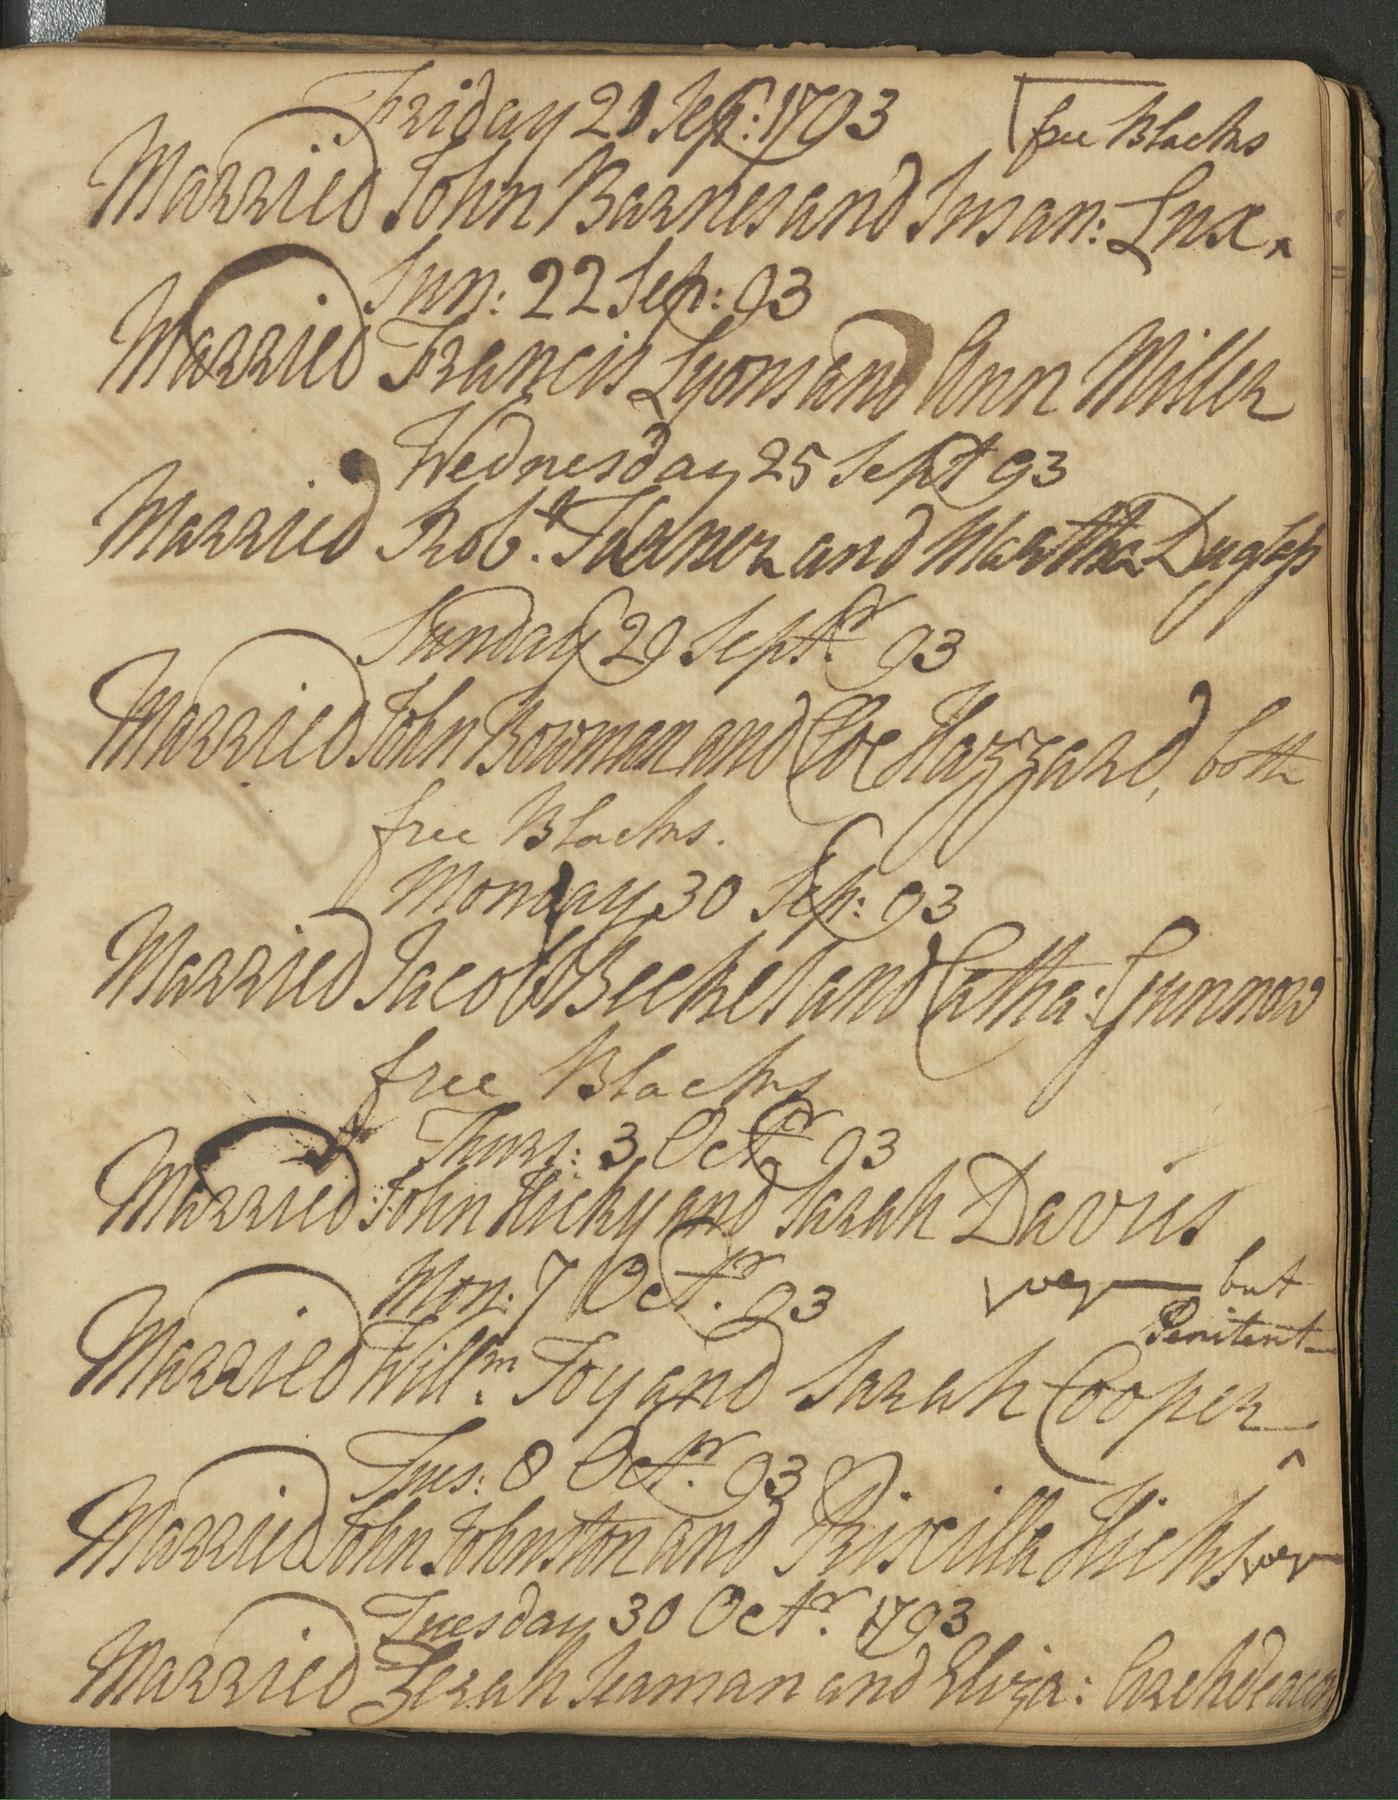 Friday 21 Sep: 1793
free Blacks
Married John Barnes and Susan: Lux ^
Sun: 22 Sep: 93
Married Francis Lyons and Ann Miller
Wednesday 25 Sept 93
Married Robt. Turner and Martha Duglass
Sunday 29 Septr. 93
Married John Bowman and Cloe Hazzard, both
free Blacks.
Monday 30 Sep: 93
Married Jacob Becket and Catha: Gunnow
free Blacks
Thurs: 3 Octr 93
Married John Hicky and Sarah Davies
Mon: 7 Octr. 93
but
Penitent
Married Willm. Toy and Sarah Cooper
^
Tues: 8 Octr. 93
Married John Johnston and Priscilla Hicks
Tuesday 30 Octr. 1793
Married Zerah Seaman and Eliza: Archdeacon